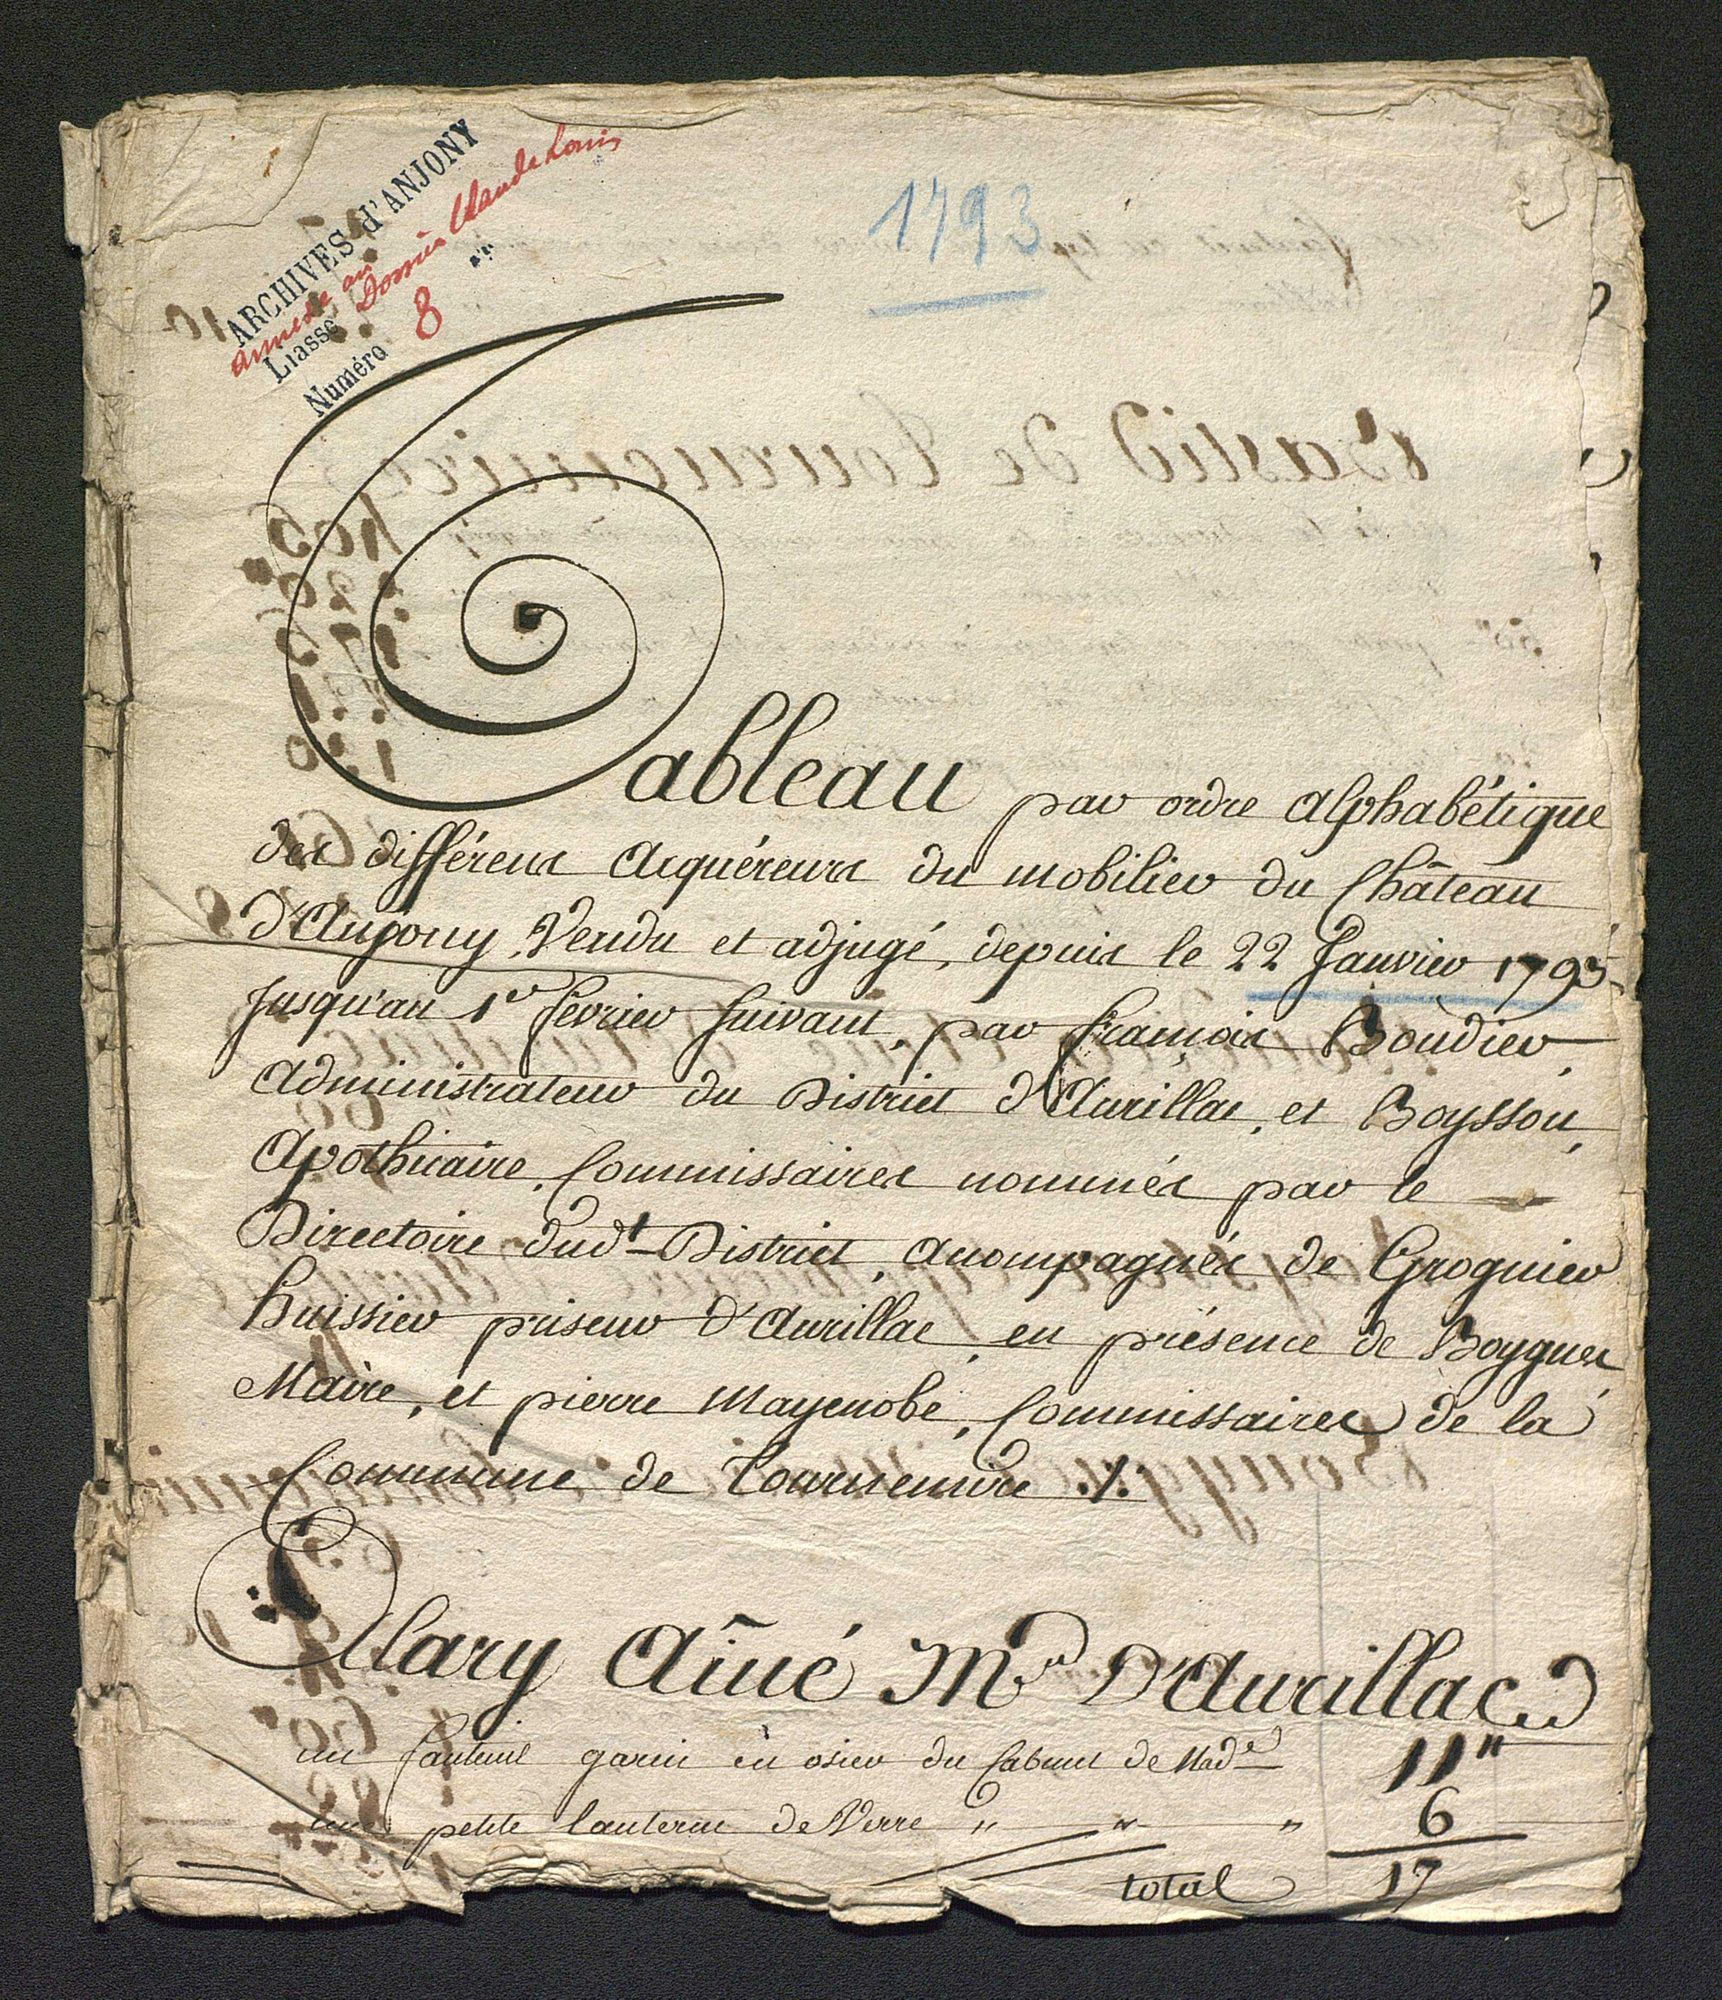 ARCHIVES d'ANJONY
annexe au
Liasse Dossier Claude Louis
Numéro 8
1793
Tableau par ordre alphabétique
des différens acquéreurs du mobilier du Château
d'Anjony, Vendu et adjugé, depuis le 22 Janvier 1793
Jusqu'au 1er février suivant, par françois Boudier,
administrateur du District d'Aurillac, et Boysson,
Apothicaire, Commissaires nommés par le
Directoire dudt District, acompagnés de Grognier
huissier priseur d'Aurillac, en présence de Boygues
Maire, et pierre Mayenobe, Commissaires de la
Commune de Tournemire ./.
Clary Ainé Md D'Aurillac
un fauteuil garni en osier du Cabinet de Made 11"
une petite lanterne de Verre " " " 6
total 17